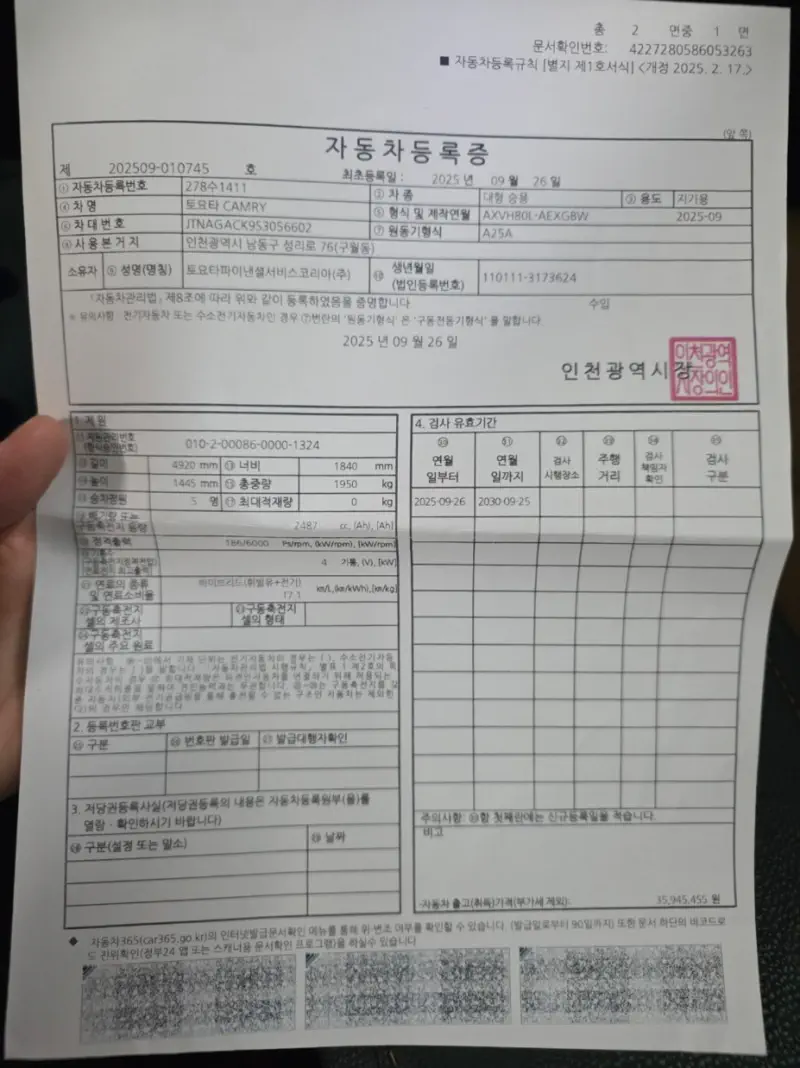 총 2 면중 1 면
문서확인번호: 4227280586053263
■ 자동차등록규칙 [별지 제1호서식] <개정 2025. 2. 17.>
(앞 쪽)
자동차등록증
제 202509-010745 호 최초등록일 : 2025 년 09 월 26 일
① 자동차등록번호 278수1411 ② 차 종 대형 승용 ③ 용도 자가용
④ 차 명 토요타 CAMRY ⑤ 형식 및 제작연월 AXVH80L-AEXGBW 2025-09
⑥ 차 대 번 호 JTNAGACK953056602 ⑦ 원동기형식 A25A
⑧ 사 용 본 거 지 인천광역시 남동구 성리로 76(구월동)
소유자 ⑨ 성명(명칭) 토요타파이낸셜서비스코리아(주) ⑩ 생년월일 (법인등록번호) 110111-3173624
「자동차관리법」 제8조에 따라 위와 같이 등록하였음을 증명합니다 수입
※ 유의사항 : 전기자동차 또는 수소전기자동차인 경우 ⑦번란의 '원동기형식' 은 '구동전동기형식' 을 말합니다
2025 년 09 월 26 일
인천광역시장
1. 제원
제원관리번호 (형식승인번호) 010-2-00086-0000-1324
길이 4920 mm 너비 1840 mm
높이 1445 mm 총중량 1950 kg
승차정원 5 명 최대적재량 0 kg
배기량 또는 구동축전지 용량 2487 cc, (Ah), [Ah]
정격출력 186/6000 Ps/rpm, (kW/rpm), [kW/rpm]
4 기통, (V), [kW]
연료의 종류 및 연료소비율 하이브리드(휘발유+전기) 17.1 km/L,(km/kWh),[km/kg]
구동축전지 셀의 제조사 구동축전지 셀의 형태
구동축전지 셀의 주요 원료
2. 등록번호판 교부
구분 번호판 발급일 발급대행자확인
3. 저당권등록사실(저당권등록의 내용은 자동차등록원부(을)를
열람ㆍ확인하시기 바랍니다)
구분(설정 또는 말소) 날짜
4. 검사 유효기간
연월일부터 연월일까지 검사 시행장소 주행거리 검사 책임자 확인 검사 구분
2025-09-26 2030-09-25
주의사항: 항 첫째란에는 신규등록일을 적습니다.
비고
·자동차 출고(취득)가격(부가세 제외): 35,945,455 원
◆ 자동차365(car365.go.kr)의 인터넷발급문서확인 메뉴를 통해 위·변조 여부를 확인할 수 있습니다. (발급일로부터 90일까지) 또한 문서 하단의 바코드로
도 진위확인(정부24 앱 또는 스캐너용 문서확인 프로그램)을 하실수 있습니다